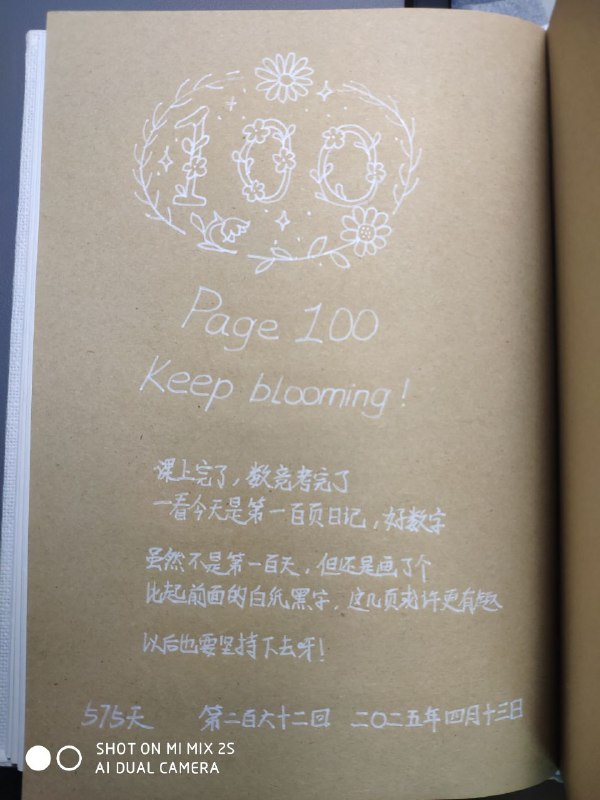 100
Page 100
Keep blooming!
课上完了，数竞考完了
一看今天是第一百页日记，好数字
虽然不是第一百天，但还是画了个
比起前面的白纸黑字，这几页或许更有趣
以后也要坚持下去呀！
575天 第二百六十二回 二〇二五年四月十三日
SHOT ON MI MIX 2S
AI DUAL CAMERA